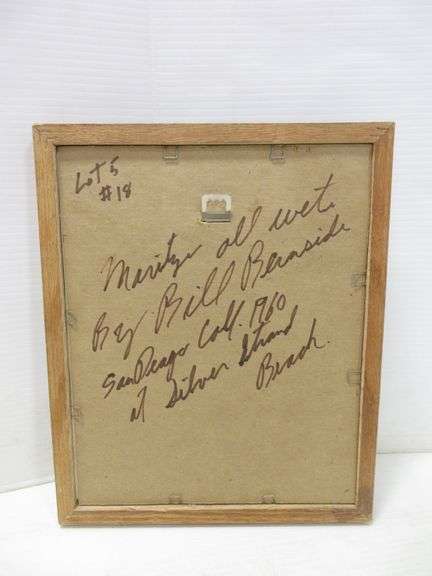 Lot 5
#18
Marilyn all wet.
By Bill Bernside
San Deago Calf. 1960
at Silver Strand
Beach.